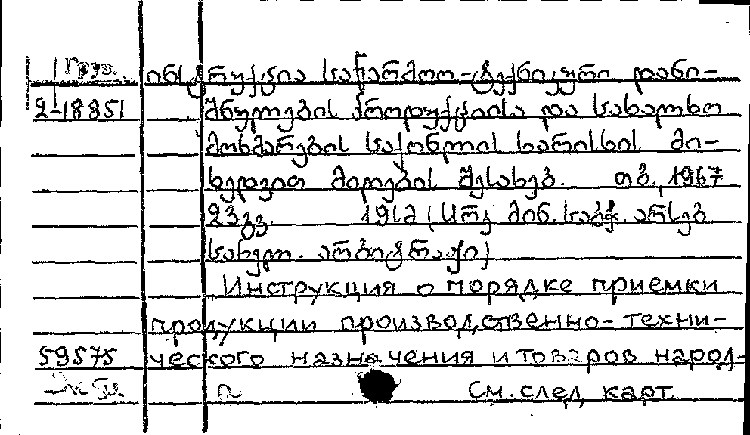 Груз. ინსტრუქცია საწარმოო-ტექნიკური დანი-
2-18851 შნულების პროდუქციისა და სახალხო
მოხმარების საქონლის ხარისხის მი-
ხედვით მიღების შესახებ. თბ., 1967
23 გვ. 19სმ (სსრკ მინ. საბჭ. არსებ.
სახელმ. არბიტრაჟი)
Инструкция о порядке приемки
продукции производственно-техни-
59575 ческого назначения и товаров народ-
п См. след. карт.